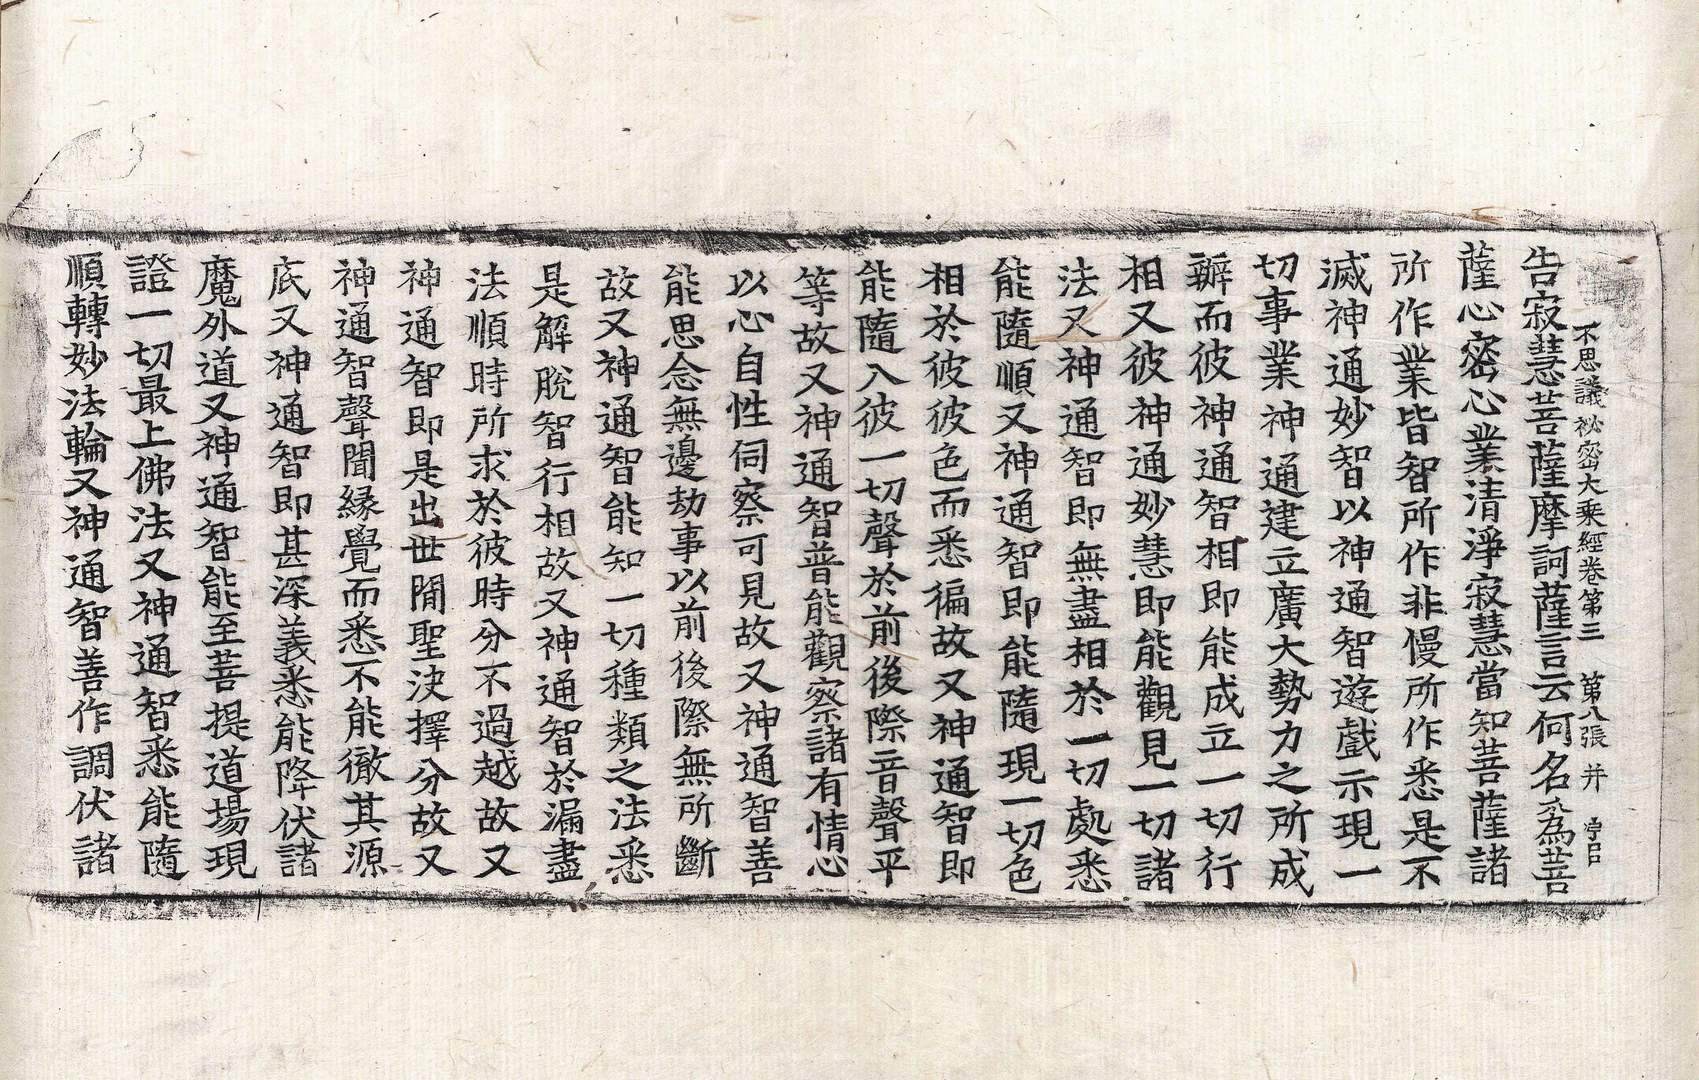 不思議祕密大乘經卷第三 第八張 并
告寂慧菩薩摩訶薩言云何名爲菩
薩心密心業清淨寂慧當知菩薩諸
所作業皆智所作非慢所作悉是不
滅神通妙智以神通智遊戲示現一
切事業神通建立廣大勢力之所成
辦而彼神通智相即能成立一切行
相又彼神通妙慧即能觀見一切諸
法又神通智即無盡相於一切處悉
能隨順又神通智即能隨現一切色
相於彼彼色而悉徧故又神通智即
能隨入彼一切聲於前後際音聲平
等故又神通智普能觀察諸有情心
以心自性伺察可見故又神通智善
能思念無邊劫事以前後際無所斷
故又神通智能知一切種類之法悉
是解脫智行相故又神通智於漏盡
法順時所求於彼時分不過越故又
神通智即是出世閒聖決擇分故又
神通智聲聞緣覺而悉不能徹其源
底又神通智即甚深義悉能降伏諸
魔外道又神通智能至菩提道場現
證一切最上佛法又神通智悉能隨
順轉妙法輪又神通智善作調伏諸